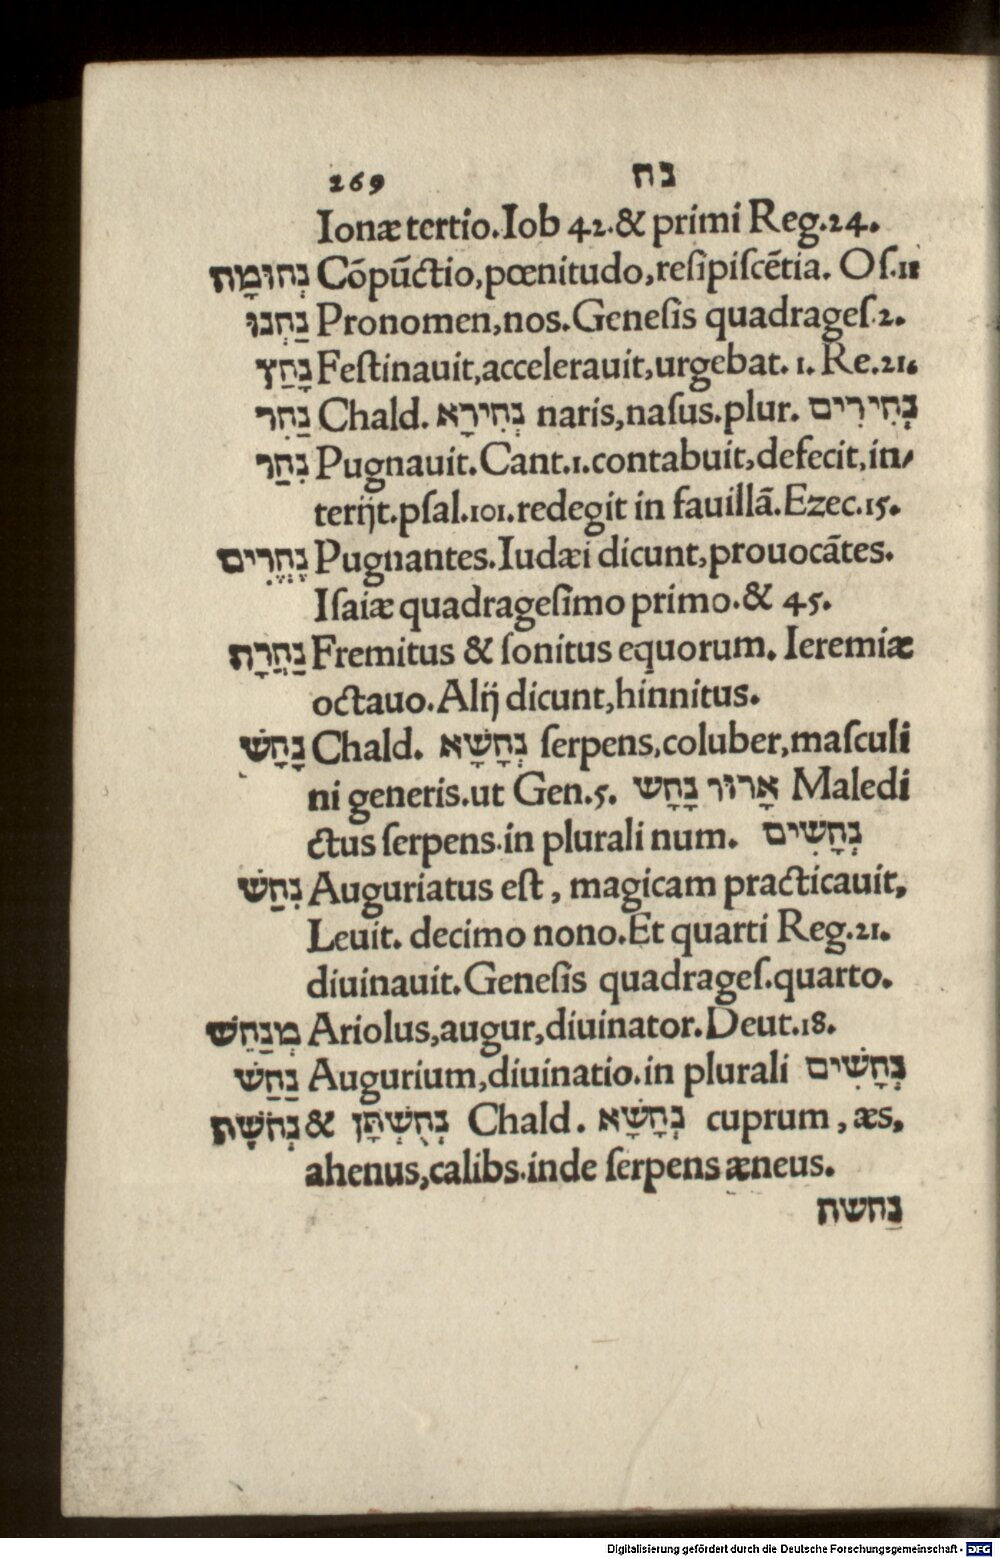 269 נח
Ionæ tertio. Iob 42. & primi Reg. 24.
נְחוּמָת Cōpūctio, pœnitudo, resipiscētia. Os. 11
נַחְנוּ Pronomen, nos. Genesis quadrages. 2.
נָחַץ Festinauit, accelerauit, urgebat. 1. Re. 21.
נַחִר Chald. נְחִירָא naris, nasus. plur. נְחִירִים
נִחַר Pugnauit. Cant. 1. contabuit, defecit, in/
terijt. psal. 101. redegit in fauillā. Ezec. 15.
נֶחֱרִים Pugnantes. Iudæi dicunt, prouocātes.
Isaiæ quadragesimo primo. & 45.
נַחֲרָת Fremitus & sonitus equorum. Ieremiæ
octauo. Alij dicunt, hinnitus.
נָחָשׁ Chald. נְחָשָׁא serpens, coluber, masculi
ni generis. ut Gen. 5. אָרוּר נָחָש Maledi
ctus serpens. in plurali num. נְחָשִׁים
נִחַשׁ Auguriatus est, magicam practicauit,
Leuit. decimo nono. Et quarti Reg. 21.
diuinauit. Genesis quadrages. quarto.
מְנַחֵשׁ Ariolus, augur, diuinator. Deut. 18.
נַחַשׁ Augurium, diuinatio. in plurali נְחָשִׁים
נְחֹשֶׁת & נְחֻשְׁתָּן Chald. נְחָשָׁא cuprum, æs,
ahenus, calibs. inde serpens æneus.
נַחשת
Digitalisierung gefördert durch die Deutsche Forschungsgemeinschaft - DFG